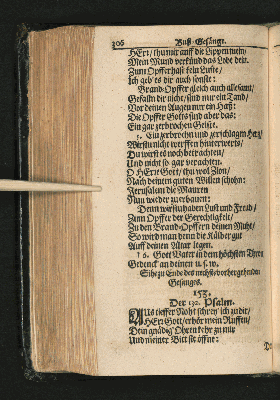 306 Buß-Gesänge.
HErr/ thu mir auff die Lippen mein/
Mein Mund verkünd das Lobe dein.
Zum Opffer hast kein Lüste/
Ich geb es dir auch sonste:
Brand-Opffer gleich auch allesam/
Gefalln dir nicht/ sind nur ein Tand/
Vor deinen Augen nur ein Haß:
Die Opffer Gotts sind aber das:
Ein gar zerbrochen Geist.
5. Ein zerbrochn und zerschlagen Hertz/
Wirstu nicht werffen hinterwerts/
Du wirst es noch betrachten/
Und nicht so gar verachten.
O HErr Gott/ thu wol Zion/
Nach deinem guten Willen schohn:
Jerusalem die Mauren
Nun wieder zu erbauen:
Denn wirstu haben Lust und Freud/
Zum Opffer der Gerechtigkeit/
Zu den Brand-Opffern deinen Muht/
So wird man denn die Kälber gut
Auff deinen Altar legen.
6. Gott Vater in dem höchsten Thron
Gedenck an deinen u. s. w.
Siehe zu Ende des nechst-vorhergehenden
Gesanges.
153.
Der 130. Psalm.
AUs tieffer Noht schrey ich zu dir/
HErr Gott/ erhör mein Ruffen/
Dein gnädig Ohren kehr zu mir
Und meiner Bitt sie öffne: